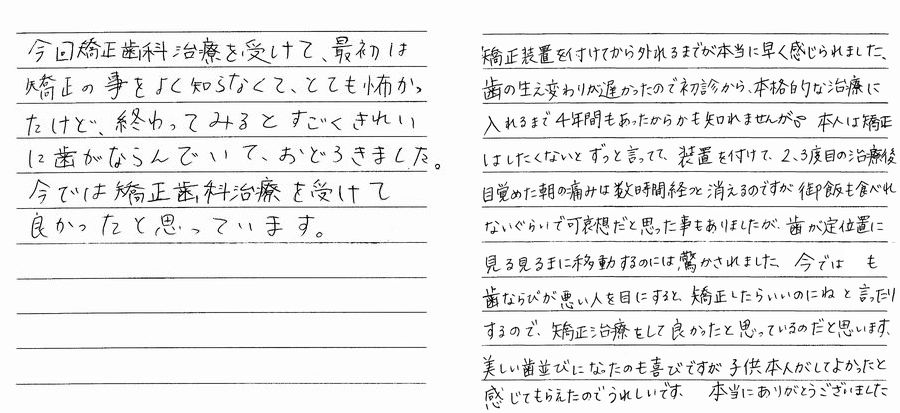 今回矯正歯科治療を受けて、最初は
矯正の事をよく知らなくて、とても怖かっ
たけど、終わってみるとすごくきれい
に歯がならんでいて、おどろきました。
今では矯正歯科治療を受けて
良かったと思っています。
矯正装置を付けてから外れるまでが本当に早く感じられました、
歯の生え変わりが遅かったので初診から、本格的な治療に
入れるまで4年間もあったからかも知れませんが。本人は矯正
はしたくないとずっと言ってて、装置を付けて、2、3度目の治療後
目覚めた朝の痛みは数時間経つと消えるのですが御飯も食べれ
ないぐらいで可哀想だと思った事もありましたが、歯が定位置に
見る見るまに移動するのには、驚かされました、今では も
歯ならびが悪い人を目にすると、矯正したらいいのにねと言ったり
するので、矯正治療をして良かったと思っているのだと思います、
美しい歯並びになったのも喜びですが子供本人がしてよかったと
感じてもらえたのでうれしいです。 本当にありがとうございました